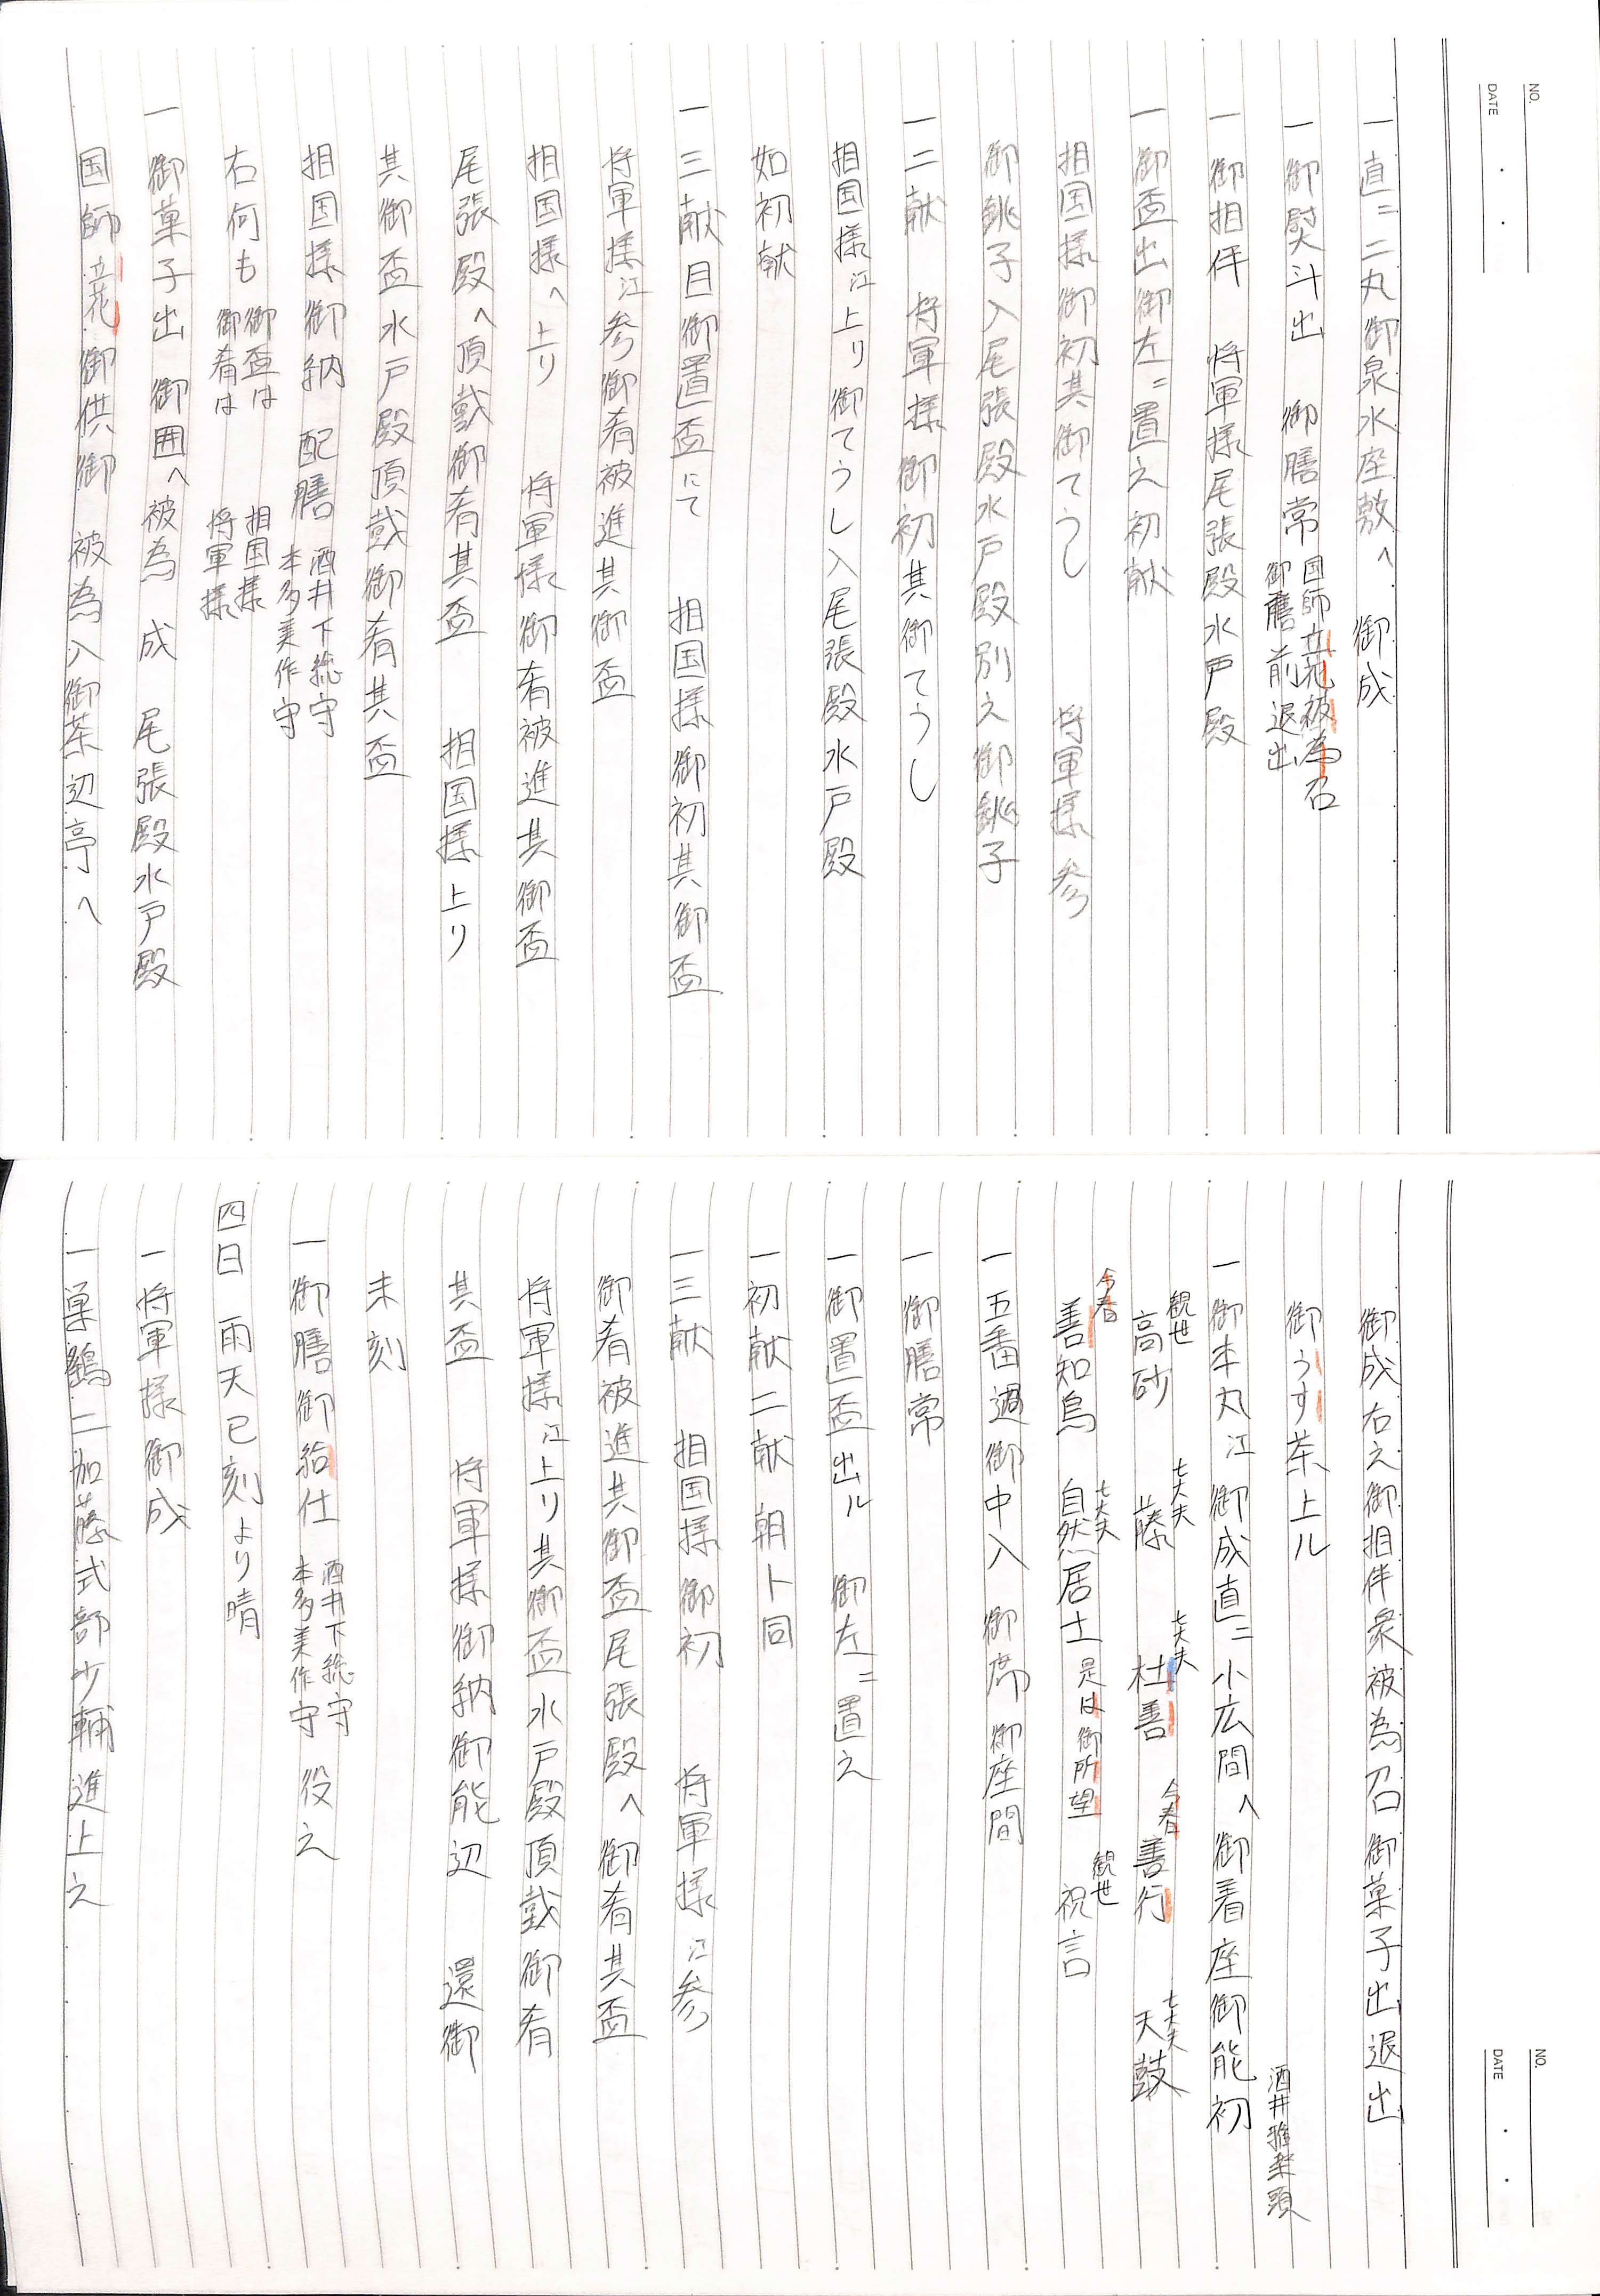 NO.
DATE
一直ニ二丸御泉水座敷へ 御成
一御熨斗出 御膳常 国師立花被為召
御膳前退出
一御相伴 将軍様尾張殿水戸殿
一御盃出御左ニ置之初献
相国様御初其御てうし 将軍様参
御銚子入尾張殿水戸殿別之御銚子
一二献 将軍様御初其御てうし
相国様江上り御てうし入尾張殿水戸殿
如初献
一三献目御置盃にて 相国様御初其御盃
将軍様江参御肴被進其御盃
相国様へ上り 将軍様御肴被進其御盃
尾張殿へ頂戴御肴其盃 相国様上り
其御盃水戸殿頂戴御肴其盃
相国様御納 配膳 酒井下総守
本多美作守
右何も 御盃は 相国様
御肴は 将軍様
一御菓子出御囲へ被為成 尾張殿水戸殿
国師立花御供御 被為入御茶辺亭へ
NO.
DATE
御成右之御相伴衆被為召御菓子出退出
御うす茶上ル 酒井雅楽頭
一御本丸江御成直ニ小広間へ御着座御能初
観世 七大夫 七大夫 今春 七大夫
高砂 藤 杜善 善行 天鼓
今春 七大夫 観世
善知鳥 自然居士 是は御所望 祝言
一五番過御中入 御席 御座間
一御膳常
一御置盃出ル 御左ニ置之
一初献二献 朝ト同
一三献 相国様御初 将軍様江参
御肴被進其御盃尾張殿へ御肴其盃
将軍様江上り其御盃水戸殿頂戴御肴
其盃 将軍様御納御能辺 還御
未刻
一御膳御給仕 酒井下総守 役之
本多美作守
四日 雨天巳刻より晴
一将軍様御成
一巣鶴二加藤式部少輔進上之